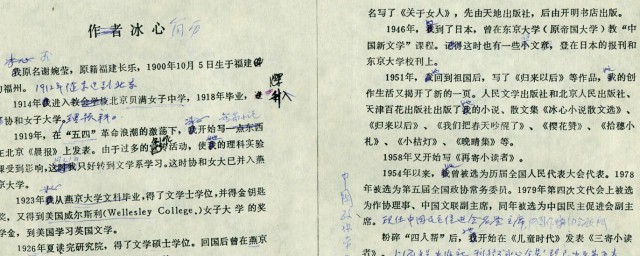 作者冰心
我原名谢婉莹,原籍福建长乐,1900年10月5日生于福建
福州。
1914年我进入教会学校北京贝满女子中学,1918年毕业,
协和女子大学,理预科。
1919年,在“五四”革命浪潮的激荡下,我开始写一点东西
在北京《晨报》上发表。由于过多的活动,使我的理科实验
课受到影响,我只好转到文学系学习。这时协和女大已并入燕
京大学。
1923年我从燕京大学文科毕业,得了文学士学位,并得金钥匙
奖,又得到美国威尔斯利(Wellesley College,)女子大学的奖
学金,到美国学习英国文学。
1926年夏读完研究院,得了文学硕士学位。回国后曾在燕京
名写了《关于女人》,先由天地出版社,后由开明书店出版。
1946年,我到了日本,曾在东京大学(原帝国大学)教“中
国新文学”课程。记得这时也有一些小文章,登在日本的报刊和
东京大学校刊上。
1951年,我回到祖国后,写了《归来以后》等作品,我的创
作生活又揭开了新的一页。人民文学出版社和北京人民出版社、
天津百花出版社出版了我的小说、散文集《冰心小说散文选》、
《归来以后》、《我们把春天吵醒了》、《樱花赞》、《拾穗小
札》、《小桔灯》、《晚晴集》等。
1958年又开始写《再寄小读者》。
1954年以来,我曾被选为历届全国人民代表大会代表。1978
年被选为第五届全国政协常务委员。1979年第四次文代会上被选
为作协理事、中国文联副主席,同年被选为中国民主促进会副主
席。
粉碎“四人帮”后,我开始在《儿童时代》发表《三寄小读
者》。